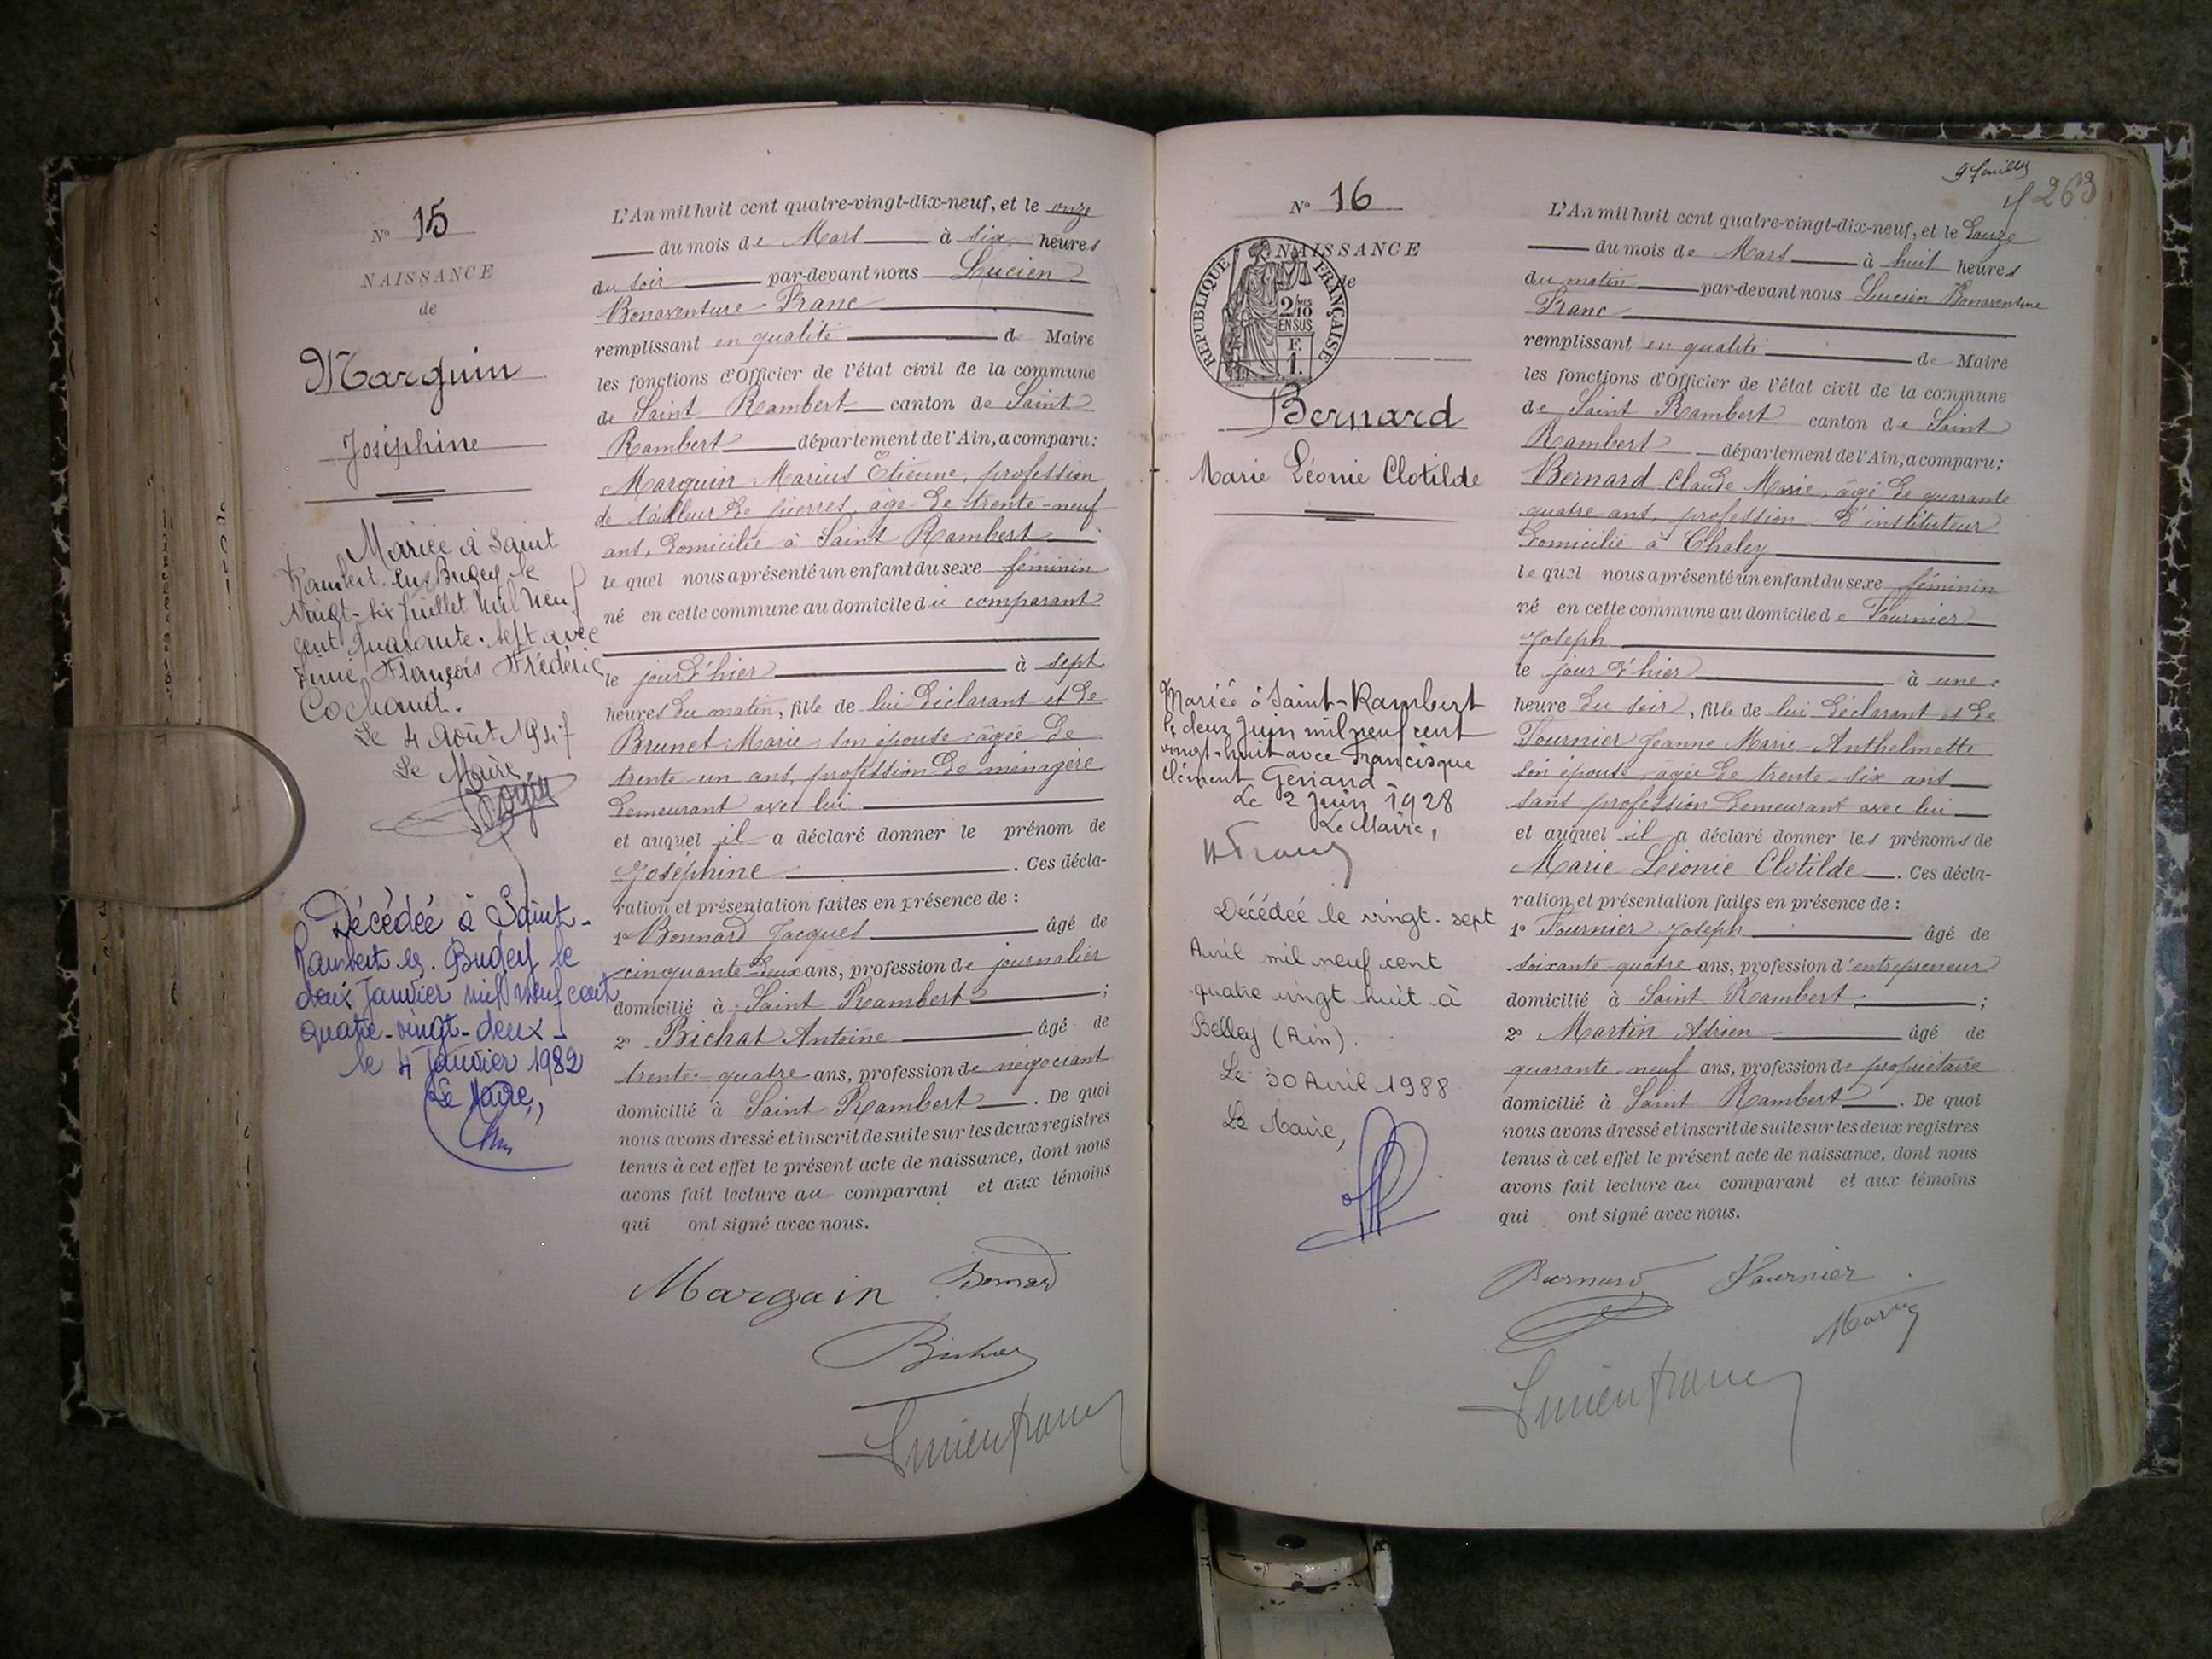 N° 15
NAISSANCE
de
Marguin
Joséphine
Mariée à Saint
Rambert-en-Bugey le
vingt-six juillet mil neuf
cent quarante-sept avec
François Frédéric
Cochand.
Le 4 Août 1947
Le Maire
Décédée à Saint-
Rambert en Bugey le
deux Janvier mil neuf cent
quatre-vingt-deux
le 4 Janvier 1982
Le Maire,
L'An mil huit cent quatre-vingt-dix-neuf, et le onze
du mois de Mars à six heures
du soir par-devant nous Lucien
Bonaventure Franc
remplissant en qualité de Maire
les fonctions d'Officier de l'état civil de la commune
de Saint Rambert canton de Saint
Rambert département de l'Ain, a comparu:
Marguin Marius Etienne, profession
de tailleur de pierres, âgé de trente-neuf
ans, domicilié à Saint Rambert
le quel nous a présenté un enfant du sexe féminin
né en cette commune au domicile du comparant
le jour d'hier à sept
heures du matin, fille de lui déclarant et de
Brunet Marie son épouse âgée de
trente un ans, profession de ménagère
demeurant avec lui
et auquel il a déclaré donner le prénom de
Joséphine. Ces décla-
ration et présentation faites en présence de :
1° Bonnard Jacques âgé de
cinquante-deux ans, profession de journalier
domicilié à Saint Rambert ;
2° Bichat Antoine âgé de
trente-quatre ans, profession de négociant
domicilié à Saint Rambert. De quoi
nous avons dressé et inscrit de suite sur les deux registres
tenus à cet effet le présent acte de naissance, dont nous
avons fait lecture au comparant et aux témoins
qui ont signé avec nous.
Marguin Bonnard
Bichat
Lucien franc
N° 16
NAISSANCE
de
RÉPUBLIQUE FRANÇAISE
2/10
EN SUS
F.
1.
Bernard
Marie Léonie Clotilde
Mariée à Saint-Rambert
le deux Juin mil neuf cent
vingt-huit avec Francisque
Clément Geniand
Le 2 Juin 1928
Le Maire,
Décédée le vingt-sept
Avril mil neuf cent
quatre vingt huit à
Belley (Ain).
Le 30 Avril 1988
Le Maire,
263
L'An mil huit cent quatre-vingt-dix-neuf, et le douze
du mois de Mars à huit heures
du matin par-devant nous Lucien Bonaventure
Franc
remplissant en qualité de Maire
les fonctions d'Officier de l'état civil de la commune
de Saint Rambert canton de Saint
Rambert département de l'Ain, a comparu:
Bernard Claude Marie, âgé de quarante
quatre ans, profession d'instituteur
domicilié à Chaley
le quel nous a présenté un enfant du sexe féminin
né en cette commune au domicile de Fournier
Joseph
le jour d'hier à une
heure du soir, fille de lui déclarant et de
Fournier Jeanne Marie Anthelmette
son épouse âgée de trente-six ans
sans profession demeurant avec lui
et auquel il a déclaré donner les prénoms de
Marie Léonie Clotilde. Ces décla-
ration et présentation faites en présence de :
1° Fournier Joseph âgé de
soixante-quatre ans, profession d'entrepreneur
domicilié à Saint Rambert ;
2° Martin Adrien âgé de
quarante-neuf ans, profession de propriétaire
domicilié à Saint Rambert. De quoi
nous avons dressé et inscrit de suite sur les deux registres
tenus à cet effet le présent acte de naissance, dont nous
avons fait lecture au comparant et aux témoins
qui ont signé avec nous.
Bernard Fournier
Lucien franc